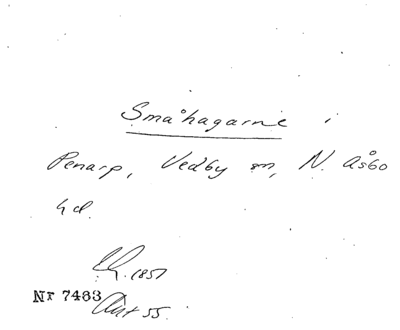 Småhagarne i
Penarp, Vedby sn, N. Åsbo
hd.
1851
Nr 7483
Akt 55.